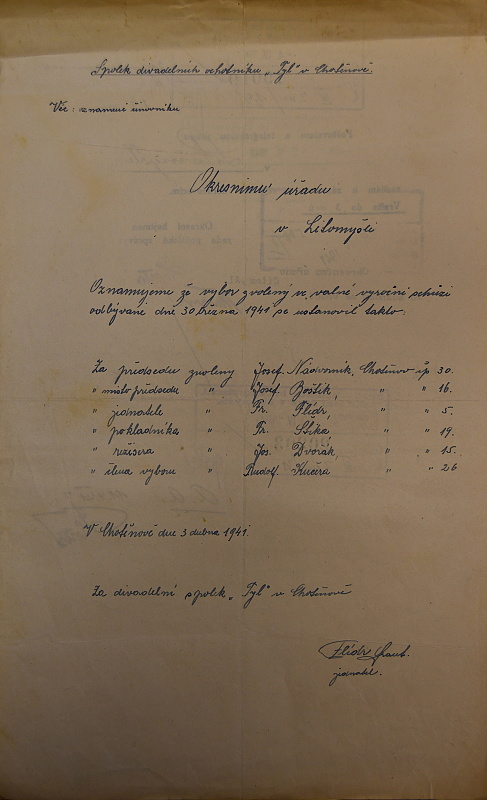 Spolek divadelních ochotníku „Tyl" v Chotěnově.
Věc: oznamení únovníku
Okresnimu úřadu
v Litomyšli
Oznamujeme že vybor zvolený ve valné vyroční schůzi
odbývané dne 30 března 1941 se ustanovil takto:
Za předsedu zvoleny Josef. Nádvorník, Chotěnov čp 30.
" místo předsedu " Josef. Boštík, " " 16.
" jednatele " Fr. Flídr, " " 5.
" pokladníka " Fr. Stika " " 19.
" režiséra " Jos. Dvořák, " " 15.
" člena vyboru " Rudolf. Kučera " " 26
V Chotěnově dne 3 dubna 1941.
Za divadelní spolek „Tyl" v Chotěnově
Flídr Frant.
jednatel.